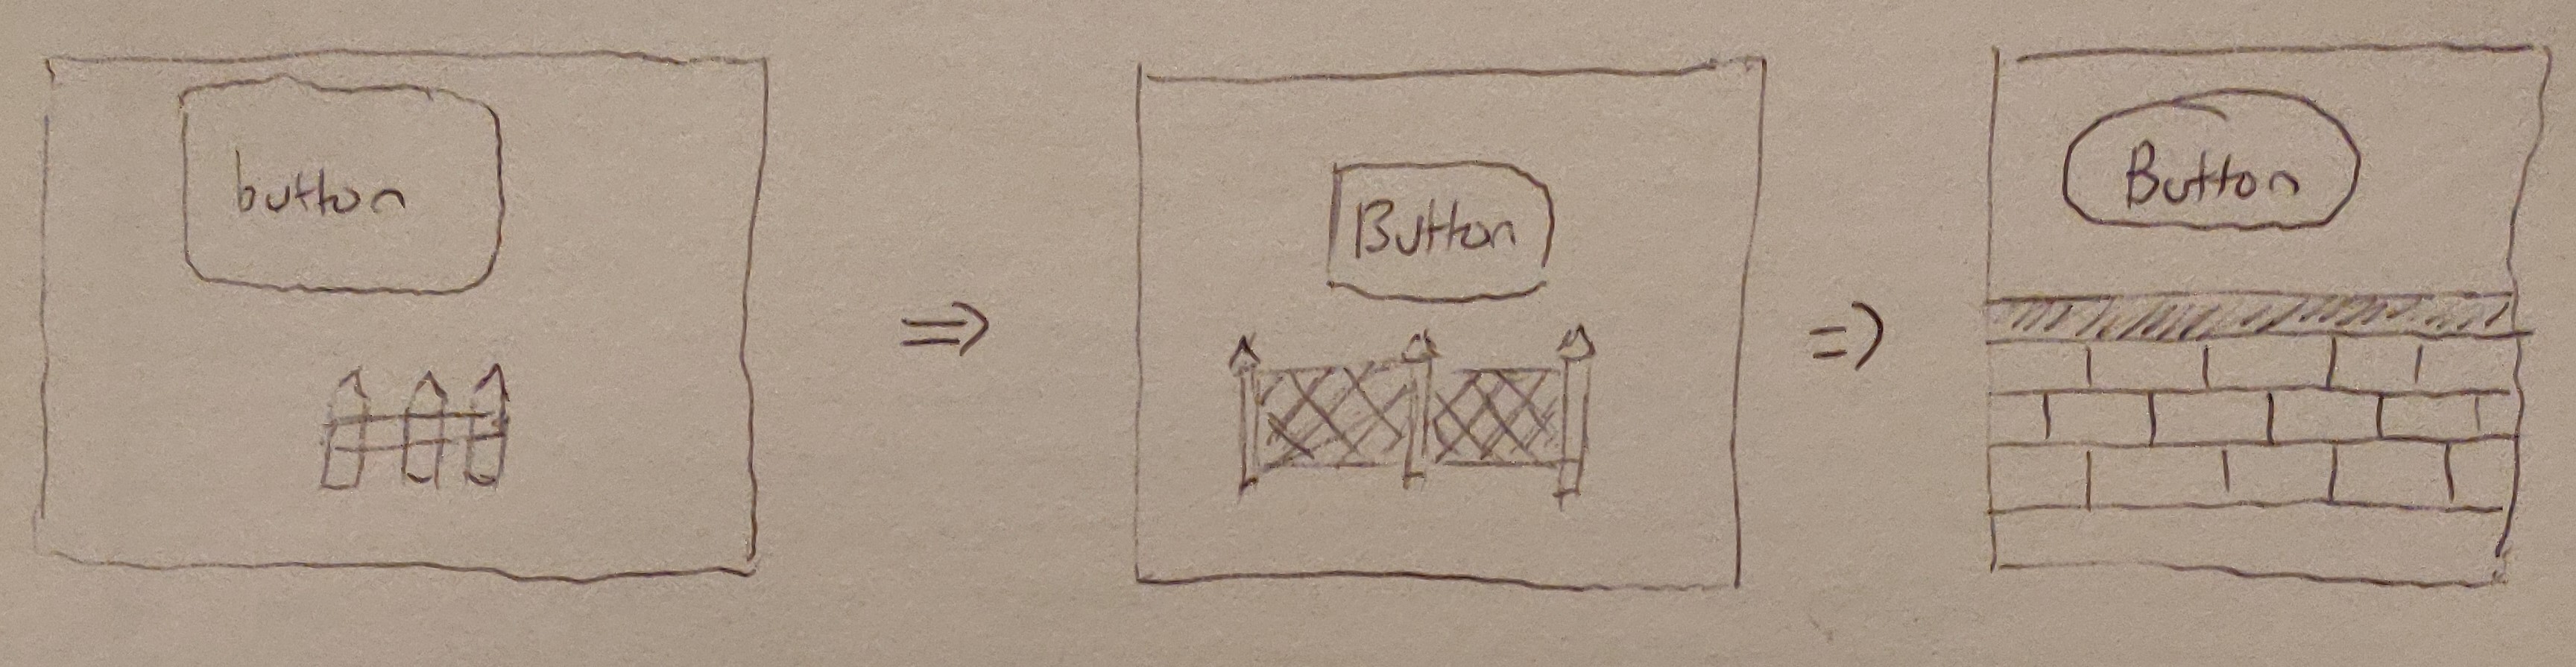 button
Button
Button